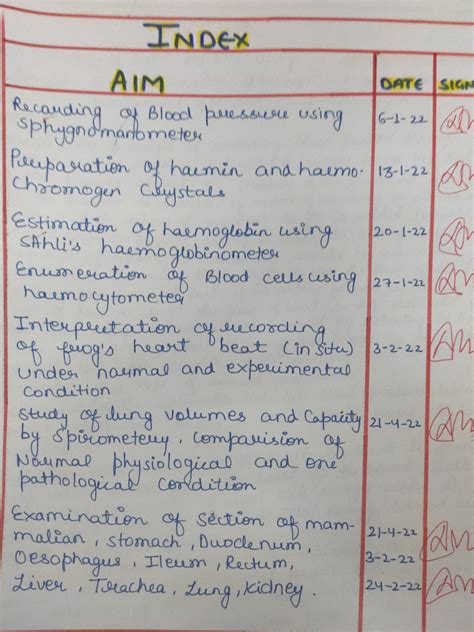 INDEX
AIM DATE SIGN
Recording of Blood pressure using
sphygnomanometer 6-1-22
Preparation of haemin and haemo-
Chromogen Crystals 13-1-22
Estimation of haemoglobin using
SAhli's haemoglobinometer 20-1-22
Enumeration of Blood cells using
haemocytometer 27-1-22
Interpretation of recording
of frog's heart beat (in situ) 3-2-22
under normal and experimental
condition
Study of lung volumes and Capacity 21-4-22
by Spirometery, comparision of
Normal physiological and one
pathological Condition
Examination of section of mam-
malian, stomach, Duodenum, 21-4-22
Oesophagus, Ileum, Rectum, 3-2-22
Liver, Trachea, Lung, Kidney. 24-2-22